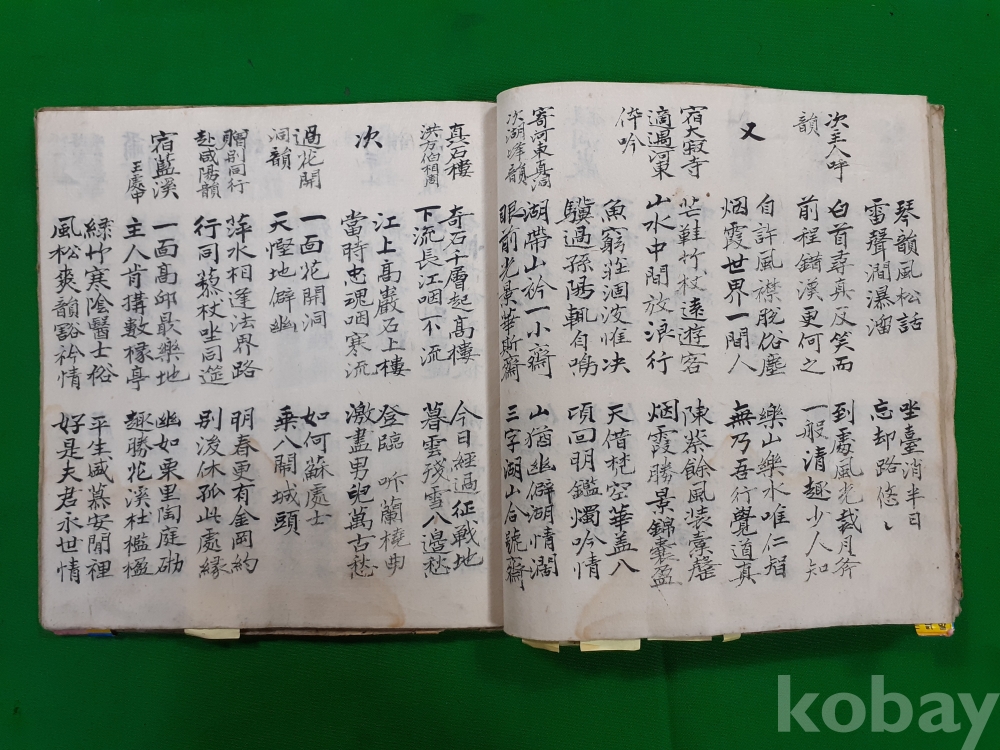 琴韻風松話 坐臺消半日
雷聲潤瀑溜 忘却路悠〻
次主人呼
韻
白首尋真反笑而 到處風光裁月斧
前程錯漠更何之 一般清趣少人知
又
自許風襟脫俗塵 樂山樂水唯仁智
烟霞世界一閒人 無乃吾行覺道真
宿大寂寺
適過河東
伜吟
芒鞋竹杖遠遊客 陳蔡餘風装橐
山水中間放浪行 烟霞勝景錦囊盈
魚窮涸波惟决 天借梵空華盖八
驥過孫陽輒自鳴 頃回明鑑燭吟情
寄河東真洞
次湖澤韻
湖帶山於一小齋 山猶幽僻湖情濶
眼前光景華斯齋 三字湖山合號齋
真石樓
洪方伯相周
奇石千層起髙樓 今日經過征戰地
下流長江咽不流 暮雲殘雪八邉愁
次
江上髙巖石上樓 登臨 听蘭橈曲
當時忠魂咽寒流 激盡男兒萬古愁
過花開
洞韻
一面花開洞 如何蘇處士
天慳地僻幽 乗八關城頭
贈別同行
赴咸陽韻
萍水相逢法界路 明春更有金岡約
行同藜杖坐同筵 別後休孤此處縁
宿藍溪
王處中
一面髙邱最樂地 幽如栗里陶庭砌
主人肯搆數椽亭 趣勝花溪杜檻楹
綠竹寒陰醫士俗 平生感慕安閒裡
風松爽韻豁衿情 好是夫君水世情